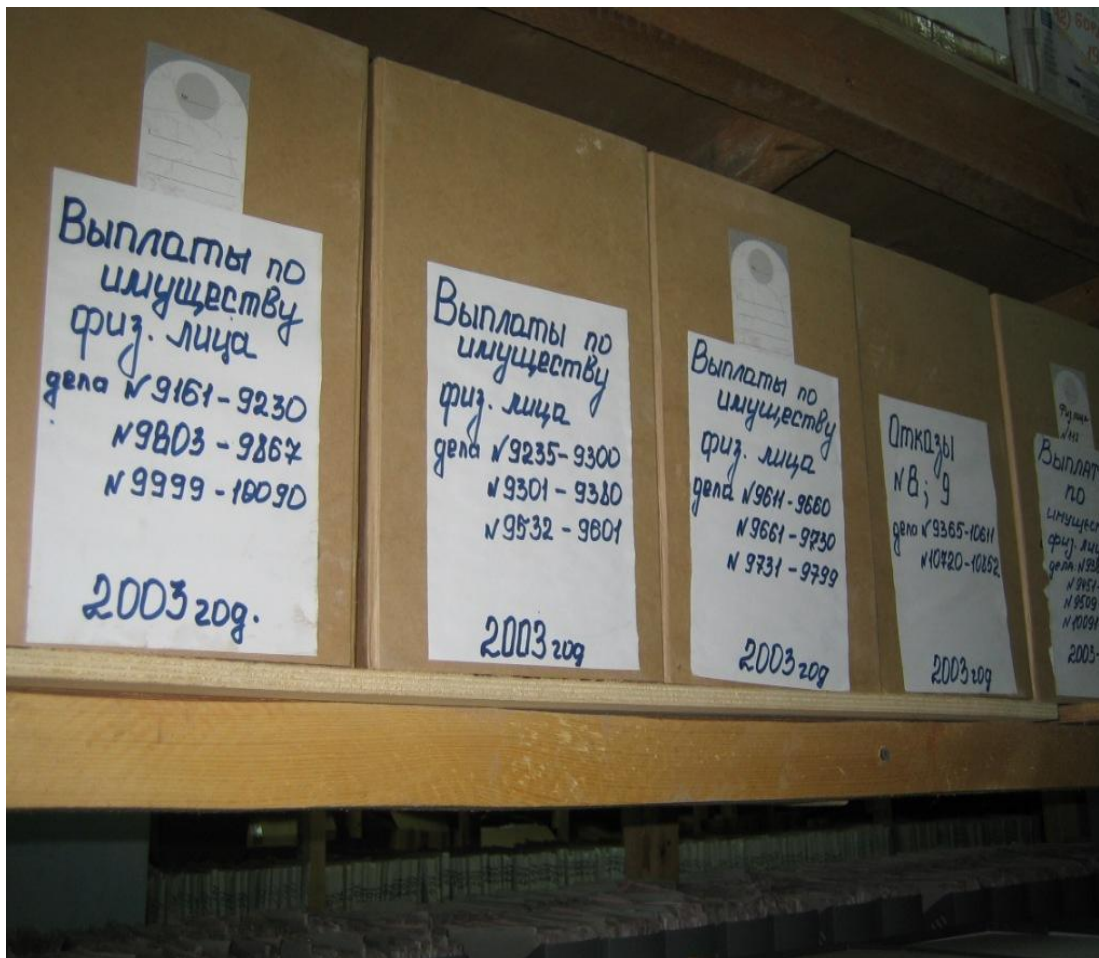 Выплаты по
имуществу
физ. лица
дела №9161-9230
№9803-9867
№9999-10090
2003 год.
Выплаты по
имуществу
физ. лица
дела №9235-9300
№9301-9380
№9532-9601
2003 год
Выплаты по
имуществу
физ. лица
дела №9611-9660
№9661-9730
№9731-9799
2003 год
Отказы
№8; 9
дела №9365-10611
№10720-10862
2003 год
Физ лица
Выплат
по
имущест
физ. лиц
дела №938
№9451-
№9509
№10091
2003-